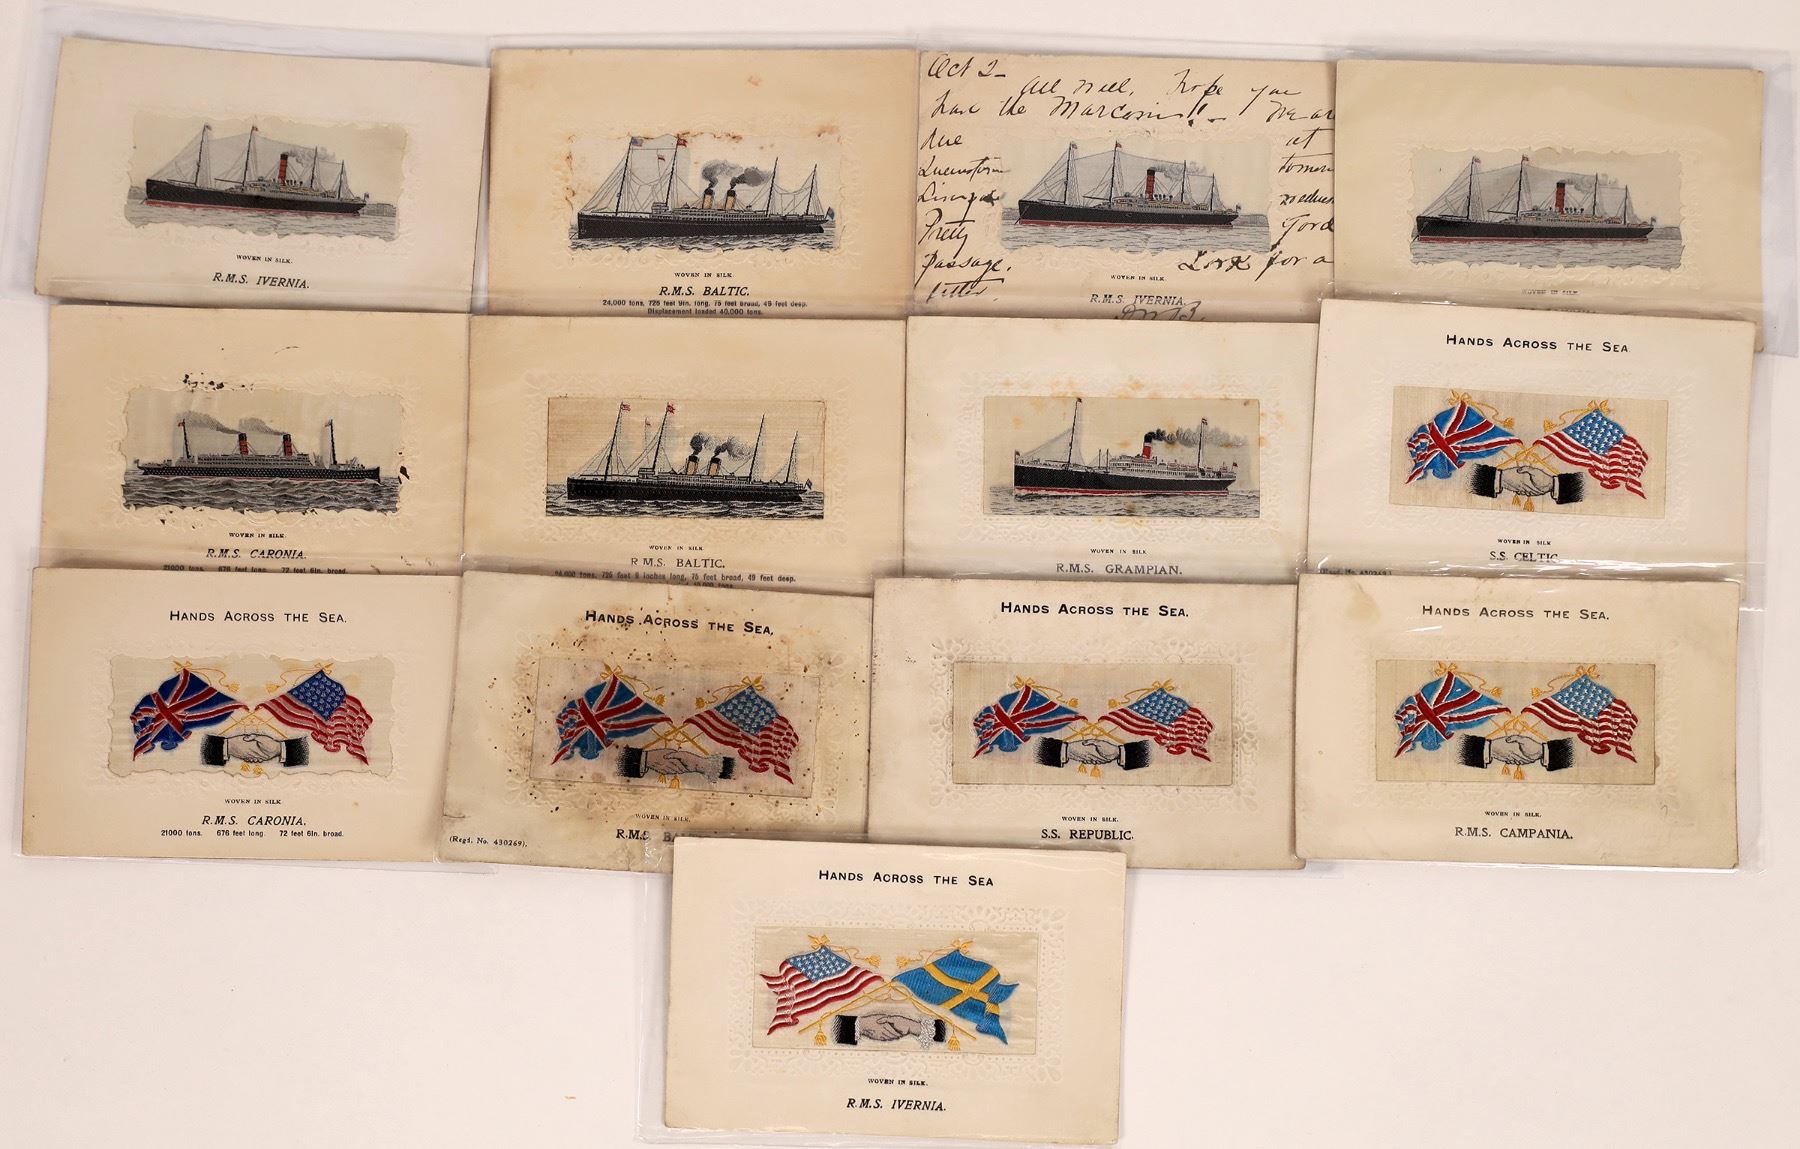 WOVEN IN SILK.
R.M.S. IVERNIA.
WOVEN IN SILK.
R.M.S. BALTIC.
24,000 tons, 726 feet 9in. long, 75 feet broad, 49 feet deep.
Displacement loaded 40,000 tons.
Oct 2-
All well, hope you
have the Marconis!! - We are
due at
Queenstown
Pretty
Passage. Look for a
letter.
WOVEN IN SILK.
R.M.S. IVERNIA.
WOVEN IN SILK.
WOVEN IN SILK.
R.M.S. CARONIA.
21000 tons. 676 feet long. 72 feet 6in. broad.
WOVEN IN SILK.
R.M.S. BALTIC.
24,000 tons, 726 feet 9 inches long, 75 feet broad, 49 feet deep.
WOVEN IN SILK.
R.M.S. GRAMPIAN.
HANDS ACROSS THE SEA.
WOVEN IN SILK
S.S. CELTIC.
(Regd. No. 430269).
HANDS ACROSS THE SEA.
WOVEN IN SILK
R.M.S. CARONIA.
21000 tons. 676 feet long. 72 feet 6in. broad.
HANDS ACROSS THE SEA,
WOVEN IN SILK.
(Regd. No. 430269).
R.M.S.
HANDS ACROSS THE SEA.
WOVEN IN SILK.
S.S. REPUBLIC.
HANDS ACROSS THE SEA.
WOVEN IN SILK.
R.M.S. CAMPANIA.
HANDS ACROSS THE SEA
WOVEN IN SILK.
R.M.S. IVERNIA.